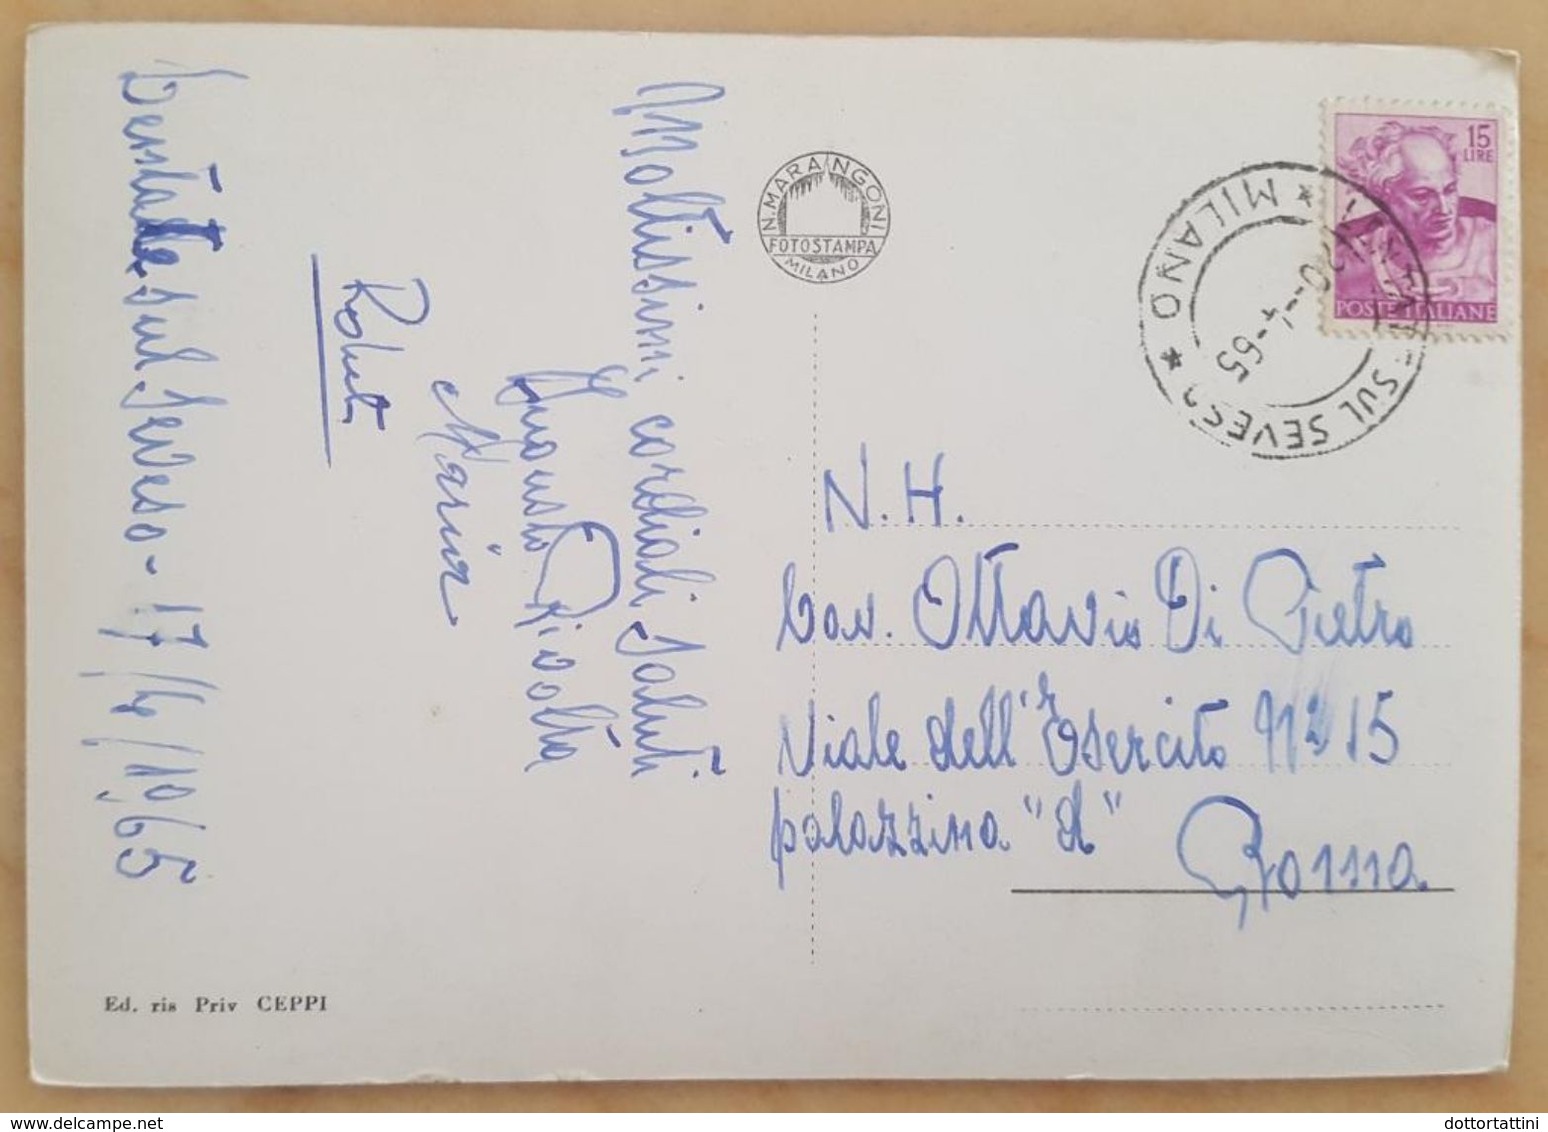 Moltissimi cordiali saluti
Rivolta
e Maria
Roberto
Bentate sul Seveso - 17/4/1965
Ed. ris Priv CEPPI
N. MARANGONI
FOTOSTAMPA
MILANO
15
LIRE
POSTE ITALIANE
SUL SEVESO
* MILANO *
20-4-65
N.H.
Cav. Ottavio Di Pietro
Viale dell'Esercito nº 15
palazzina "A"
Roma
dottortattini